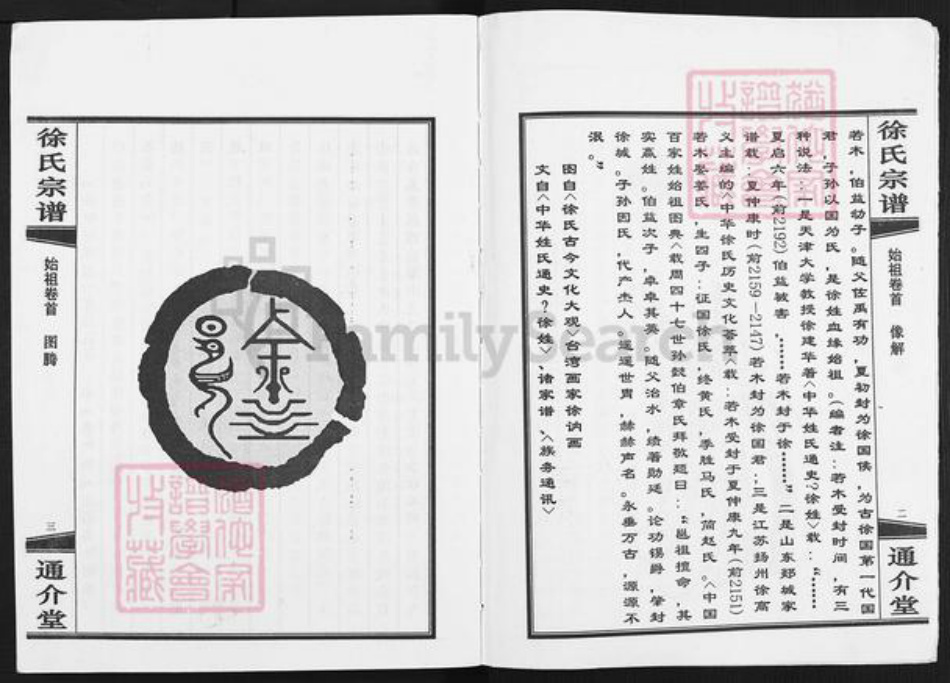 徐氏宗谱
始祖卷首 像解
二
通介堂
若木，伯益幼子。随父佐禹有功，夏初封为徐国侯，为古徐国第一代国
君，子孙以国为氏，是徐姓血缘始祖。（编者注：若木受封时间，有三
种说法：一是天津大学教授徐建华著〈中华姓氏通史?徐姓〉载：“……
夏启六年(前2192)伯益被害，……若木封于徐……”二是山东郯城家
谱载：夏仲康时(前2159-2147)若木封为徐国君；三是江苏扬州徐高
义主编的〈中华徐氏历史文化荟萃〉载：若木受封于夏仲康九年(前2151)
若木娶姜氏，生四子：证国徐氏，终黄氏，季胜马氏，简赵氏。〈中国
百家姓始祖图典〉载周四十七世孙懿伯章氏拜敬题曰：“邕祖擅命，其
实嬴姓。伯益次子，卓卓其英。随父治水，绩著勋廷。论功锡爵，肇封
徐城。子孙因氏，代产杰人。遥遥世胄，赫赫声名。永垂万古，源源不
泯。”
图自〈徐氏古今文化大观〉台湾画家徐讷画
文自〈中华姓氏通史?徐姓〉、诸家谱、〈族务通讯〉
徐氏宗谱
始祖卷首 图腾
三
通介堂
FamilySearch